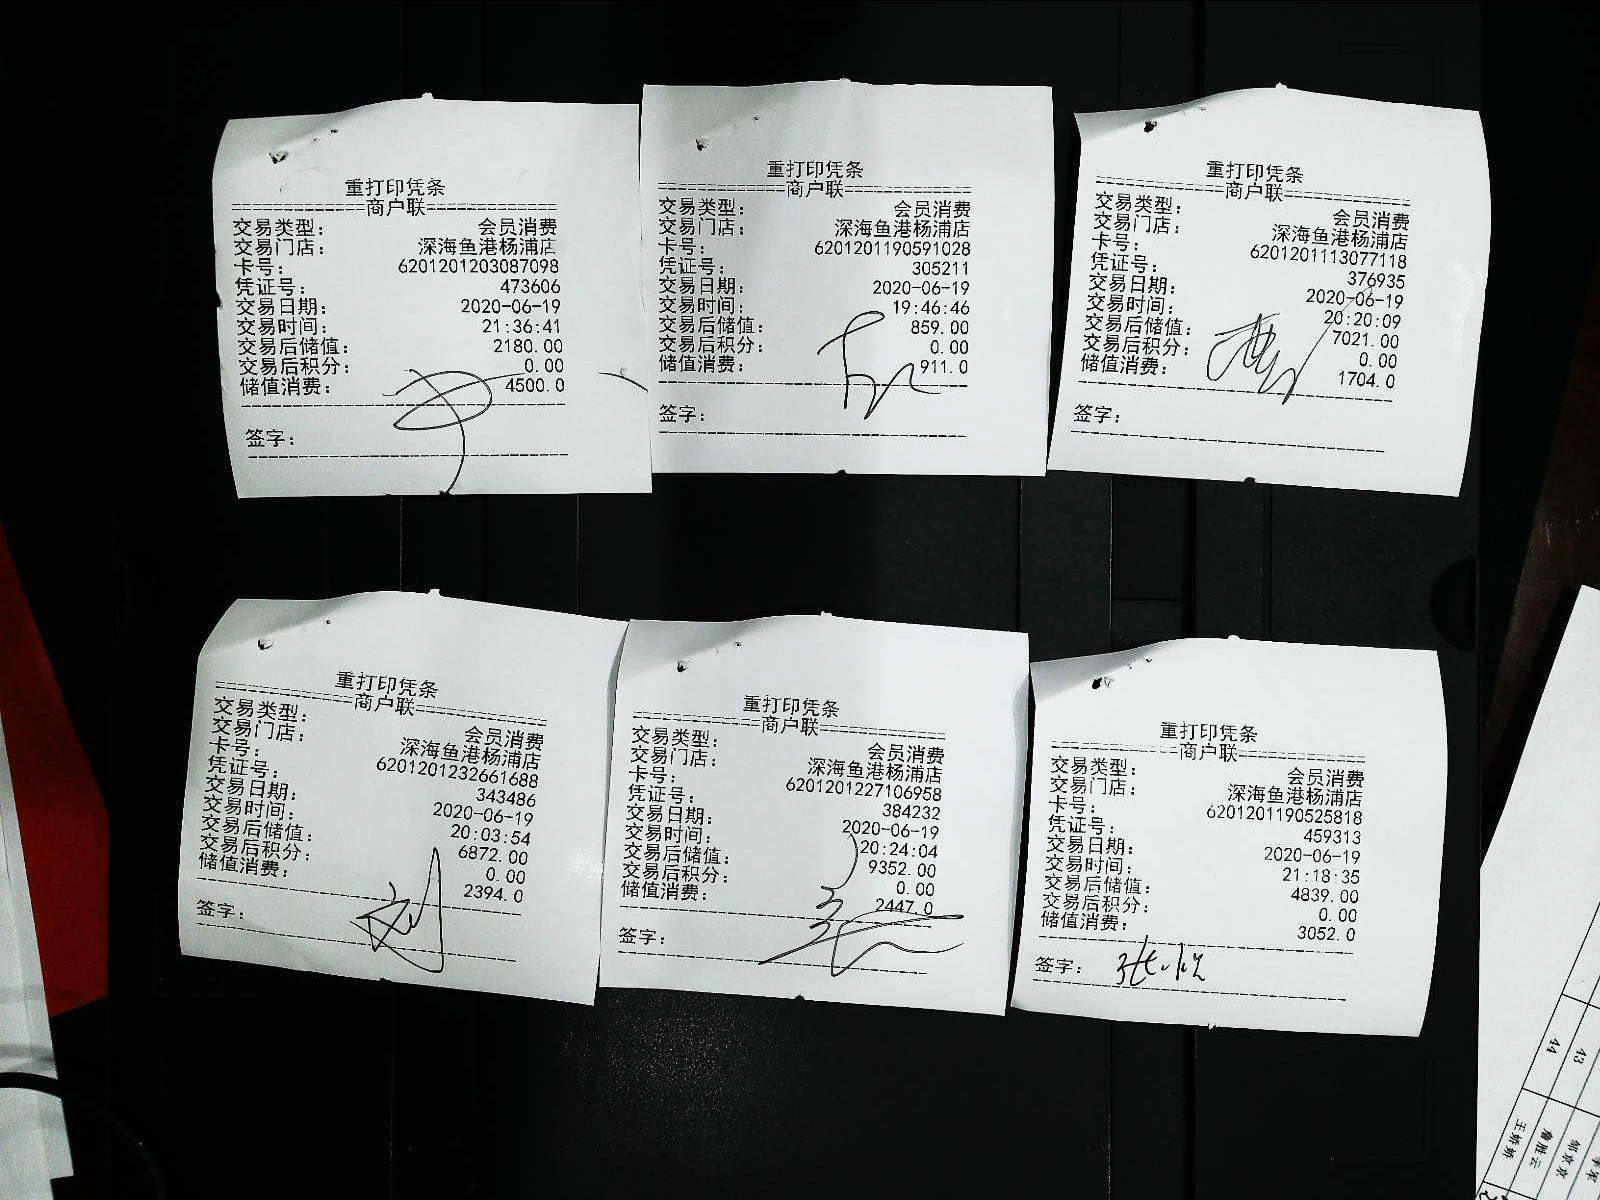 重打印凭条
====================商户联====================
交易类型： 会员消费
交易门店： 深海鱼港杨浦店
卡号： 6201201203087098
凭证号： 473606
交易日期： 2020-06-19
交易时间： 21:36:41
交易后储值： 2180.00
交易后积分： 0.00
储值消费： 4500.0
签字：
重打印凭条
====================商户联====================
交易类型： 会员消费
交易门店： 深海鱼港杨浦店
卡号： 6201201190591028
凭证号： 305211
交易日期： 2020-06-19
交易时间： 19:46:46
交易后储值： 859.00
交易后积分： 0.00
储值消费： 911.0
签字：
重打印凭条
====================商户联====================
交易类型： 会员消费
交易门店： 深海鱼港杨浦店
卡号： 6201201113077118
凭证号： 376935
交易日期： 2020-06-19
交易时间： 20:20:09
交易后储值： 7021.00
交易后积分： 0.00
储值消费： 1704.0
签字：
重打印凭条
====================商户联====================
交易类型： 会员消费
交易门店： 深海鱼港杨浦店
卡号： 6201201232661688
凭证号： 343486
交易日期： 2020-06-19
交易时间： 20:03:54
交易后储值： 6872.00
交易后积分： 0.00
储值消费： 2394.0
签字：
重打印凭条
====================商户联====================
交易类型： 会员消费
交易门店： 深海鱼港杨浦店
卡号： 6201201227106958
凭证号： 384232
交易日期： 2020-06-19
交易时间： 20:24:04
交易后储值： 9352.00
交易后积分： 0.00
储值消费： 2447.0
签字：
重打印凭条
====================商户联====================
交易类型： 会员消费
交易门店： 深海鱼港杨浦店
卡号： 6201201190525818
凭证号： 459313
交易日期： 2020-06-19
交易时间： 21:18:35
交易后储值： 4839.00
交易后积分： 0.00
储值消费： 3052.0
签字：
43
44